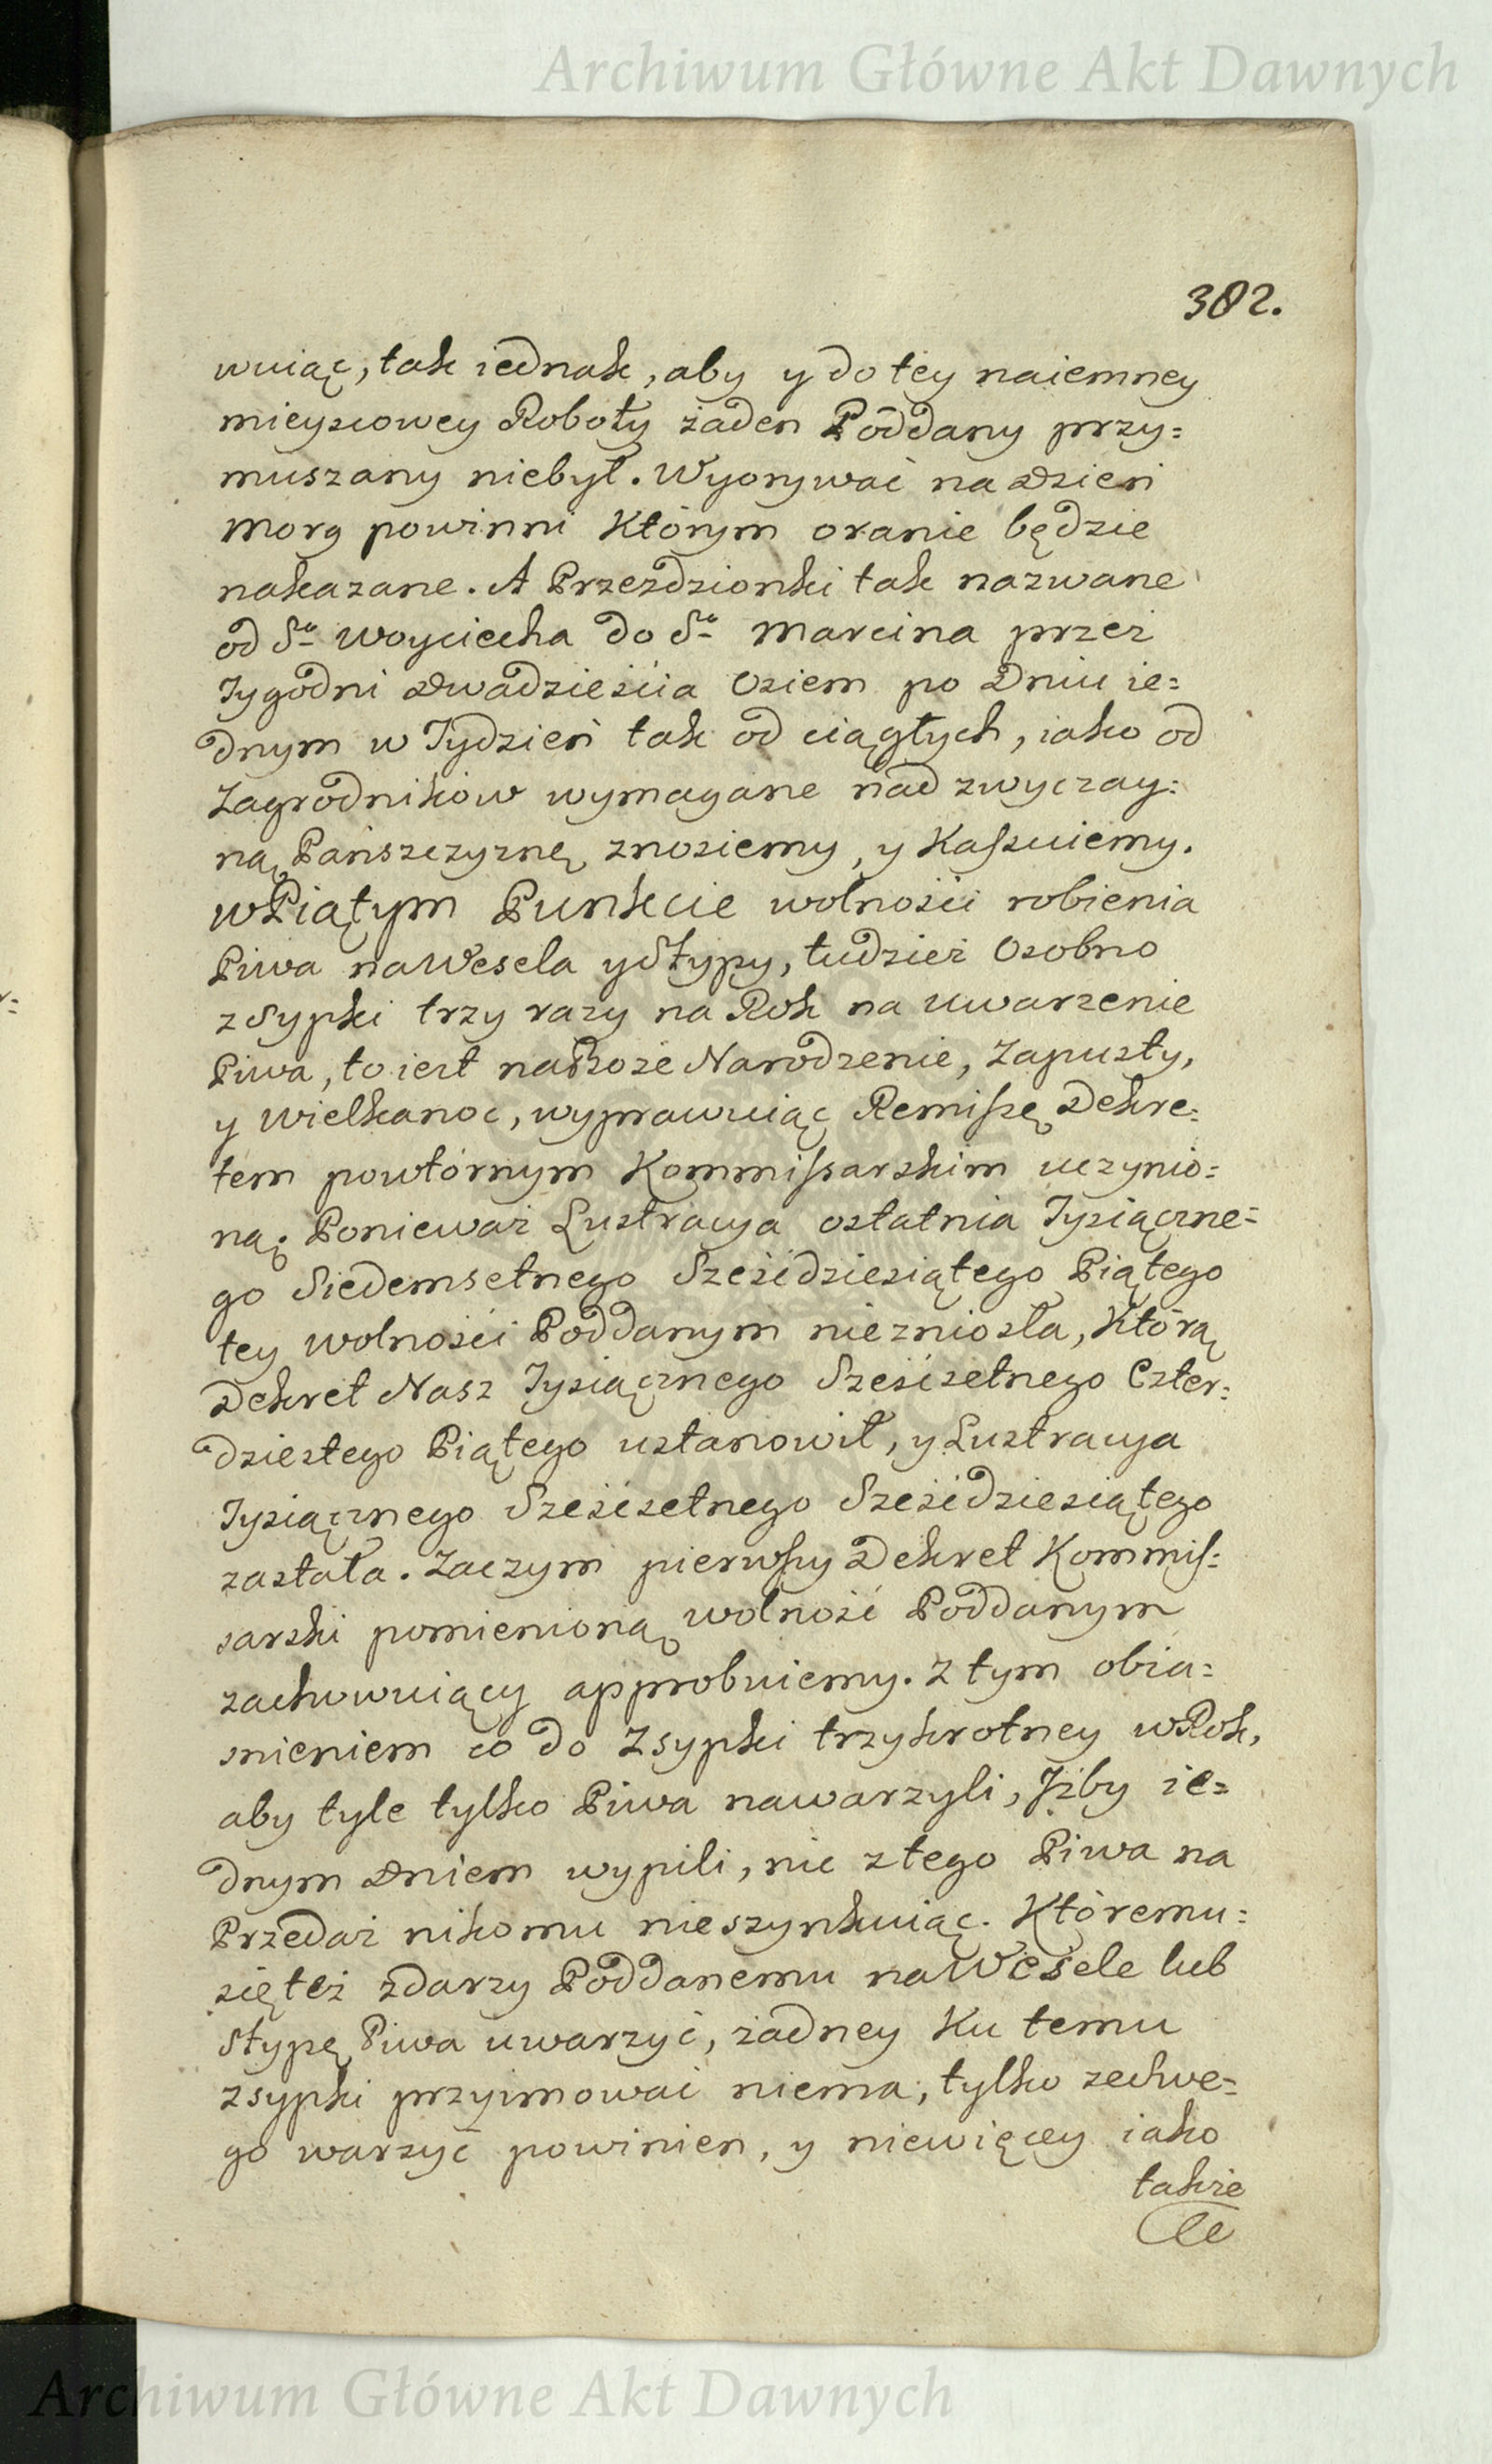 Archiwum Główne Akt Dawnych
382.
wuiąc, tak iednak, aby y do tey naiemney
mieyscowey Roboty żaden Poddany przy=
muszany niebył. Wyorywać na Dzień
Morg powinni Którym oranie będzie
nakazane. A Przezdzionki tak nazwane
od Sgo Woyciecha do Sgo Marcina przez
Tygodni Dwadzieścia Osiem po Dniu ie=
dnym w Tydzień tak od ciągłych, iako od
Zagrodników wymagane nad zwyczay=
ną Pańszczyznę znosiemy, y Kassuiemy.
w Piątym Punkcie wolności robienia
Piwa na Wesela y Stypy, tudzież Osobno
z Sypki trzy razy na Rok na uwarzenie
Piwa, to iest na Boże Narodzenie, Zapusty,
y Wielkanoc, wyprawuiąc Remissę Dekre=
tem powtórnym Kommissarskim uczynio=
ną. Ponieważ Lustracya ostatnia Tysiączne=
go Siedemsetnego Sześćdziesiątego Piątego
tey wolności Poddanym niezniosła, Którą
Dekret Nasz Tysiącznego Sześćsetnego Czter=
dziestego Piątego ustanowił, y Lustracya
Tysiącznego Sześćsetnego Sześćdziesiątego
zastała. Zaczym pierwszy Dekret Kommis=
sarski pomienioną wolność Poddanym
zachowuiący approbuiemy. Z tym obia=
snieniem co do Zsypki trzykrotney w Rok,
aby tyle tylko Piwa nawarzyli, Jżby ie=
dnym Dniem wypili, nic z tego Piwa na
Przedaż nikomu nieszynkuiąc. Któremu=
się też zdarzy Poddanemu na Wesele lub
Stypę Piwa uwarzyć, żadney Ku temu
zsypki przyimować niema, tylko ze swe=
go warzyć powinien, y niewięcey iako
także
Archiwum Główne Akt Dawnych